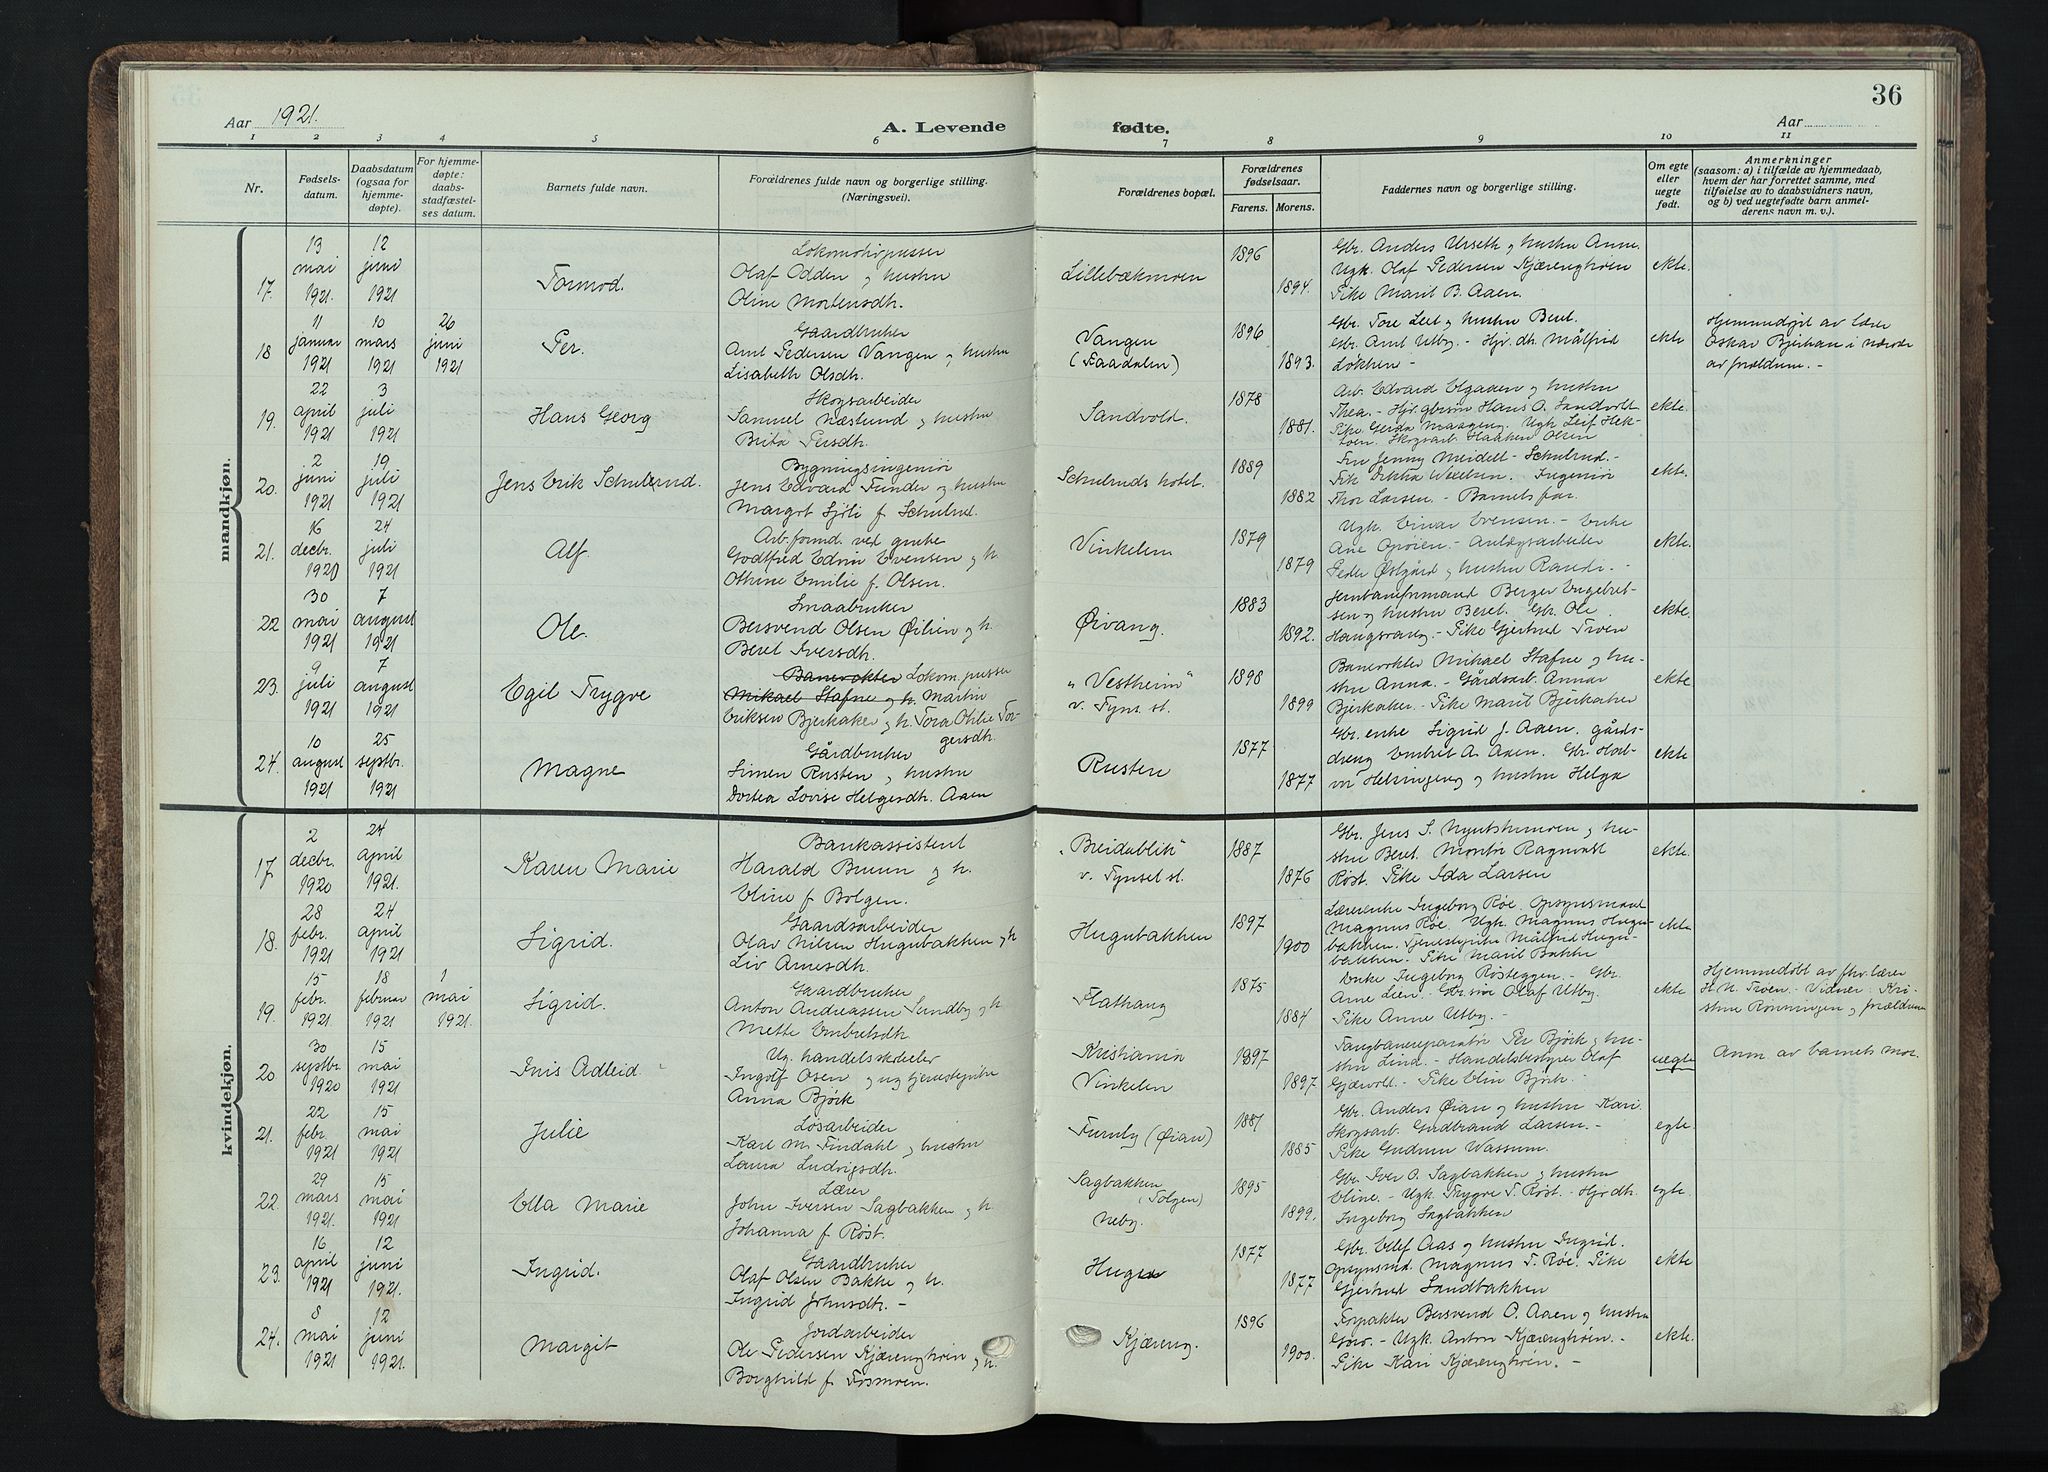 36
Aar 1921.
A. Levende fødte.
Aar
1 2 3 4 5 6 7 8 9 10 11
Nr.
Fødsels-
datum.
Daabsdatum
(ogsaa for
hjemme-
døpte).
For hjemme-
døpte:
daabs-
stadfæstel-
ses datum.
Barnets fulde navn.
Forældrenes fulde navn og borgerlige stilling.
(Næringsvei).
Forældrenes bopæl.
Forældrenes
fødselsaar.
Farens. Morens.
Faddernes navn og borgerlige stilling.
Om egte
eller
uegte
født.
Anmerkninger
(saasom: a) i tilfælde av hjemmedaab,
hvem der har forrettet samme, med
tilføielse av to daabsvidners navn,
og b) ved uegtefødte barn anmel-
derens navn m. v.).
mandkjøn.
17. 13 mai 1921. 12 juni 1921
Tormod.
Lokomotivpusser
Olaf Odden og hustru
Oline Mortensdh.
Lillebækmoen
1896 1894.
Gbr. Anders Urseth og hustru Anne.
Ugk. Olaf Pedersen Kjærenghøen
Pike Marit B. Aaen.
ekte.
18 11 januar 1921 10 mars 1921 26 juni 1921
Per.
Gaardbruker
Arnt Pedersen Vangen og hustru
Lisabeth Olsdh.
Vangen
(Faadalen)
1896 1893.
Gbr. Tore Leet og hustru Beret.
Gbr. Arnt Utby. - Hjv. dh. Målfrid
Løkken -
ekte
Hjemmedøpt av lærer
Oskar Bjerkan i nærvær
av forældrene. -
19. 22 april 1921 3 juli 1921
Hans Georg
Skogsarbeider
Samuel Næslund og hustru
Brita Persdh.
Sandvold.
1878 1881.
Arb. Edvard Elgaaen og hustru
Thea. - Hjv. gbrsøn Hans O. Sandvold
Pike Gerda Maageng. Ugk Leif Hek-
toen. Skogsarb. Haaken Olsen
ekte.
20. 2 juni 1921 19 juli 1921
Jens Erik Schulrud.
Bygningsingeniør
Jens Edvard Funder og hustru
Margot Sjøli f. Schulrud.
Schulruds hotel.
1889 1882
Fru Jenny Meidell - Schulrud. -
Frk Dikka Wexelsen. Ingeniør
Thor Larsen. - Barnets far.
ekte.
21. 16 decbr. 1920 24 juli 1921
Alf.
Arb.formd. ved grube
Godtfred Edvin Evensen og h.
Othine Emilie f. Olsen.
Vinkelen
1879 1879
Ugk. Einar Evensen. - Enke
Ane Oprøien. - Anlægsarbeider
Peder Østgård og hustru Ragnh. -
ekte.
22 30 mai 1921 7 august 1921
Ole.
Smaabruker
Bersvend Olsen Øilien og h.
Beret Iversdh.
Øivang.
1883 1892.
Jernbaneformand Berger Engebret-
sen og hustru Beret. Gbr. Ole
Haugsvang. - Pike Gjertrud Troen
ekte.
23. 9 juli 1921 7 august 1921
Egil Trygve
Banevokter Lokom.pusser
Mikael Stafne og h. Martin
Eriksen Bjerkaker og h. Tora Otilie Tor-
gersdh.
"Vestheim"
v. Tyns. st.
1898 1899
Banevokter Mikael Stafne og hu-
stru Anna. - Gårdsarb. Annar
Bjerkaker. - Pike Marit Bjerkaker
ekte
24. 10 august 1921 25 septbr. 1921
Magne
Gårdbruker
Simen Rusten og hustru
Dortea Lovise Helgesdh. Aaen
Rusten
1877 1877
Gbr. enke Sigrid J. Aaen. gårds-
dreng Embret A. Aaen. Gbr. Hal-
vor Helsingeng og hustru Helga
ekte
kvindekjøn.
17. 2 decbr. 1920 24 april 1921.
Karen Marie
Bankassistent
Harald Bruun og h.
Eline f Bolgen.
"Breidablik"
v. Tynset st.
1887 1876
Gbr. Jens S. Nyutstumoen og hu-
stru Beret. Montør Ragnvald
Røst. Pike Ida Larsen
ekte.
18. 28 febr. 1921 24 april 1921
Sigrid.
Gaardsarbeider
Olav Nilsen Hugubakken og h
Liv Arnesdh.
Hugubakken
1897 1900
Lærerenke Ingeborg Røe. Opsynsmand
Magnus Røe. Ugk. Magnus Hugu-
bakken. Tjenestepike Målfrid Hugu-
bakken. Pike Marit Bakke
ekte
19. 15 febr. 1921 18 februar 1921 1 mai 1921.
Sigrid.
Gaardbruker
Anton Andreassen Sundby og h
Mette Embretsdh.
Flathaug
1875 1884
Enke Ingeborg Røsteggen. - Gbr.
Arne Lien. Gbr.søn Olaf Utby.
Pike Anne Utby. -
ekte
Hjemmedøbt av fhv. lærer
H. N. Troen. - Vidner: Kri-
stine Rønningen og forældrene
20 30 septbr. 1920 15 mai 1921
Inis Adleid.
Ug. handelsskoleelev
Ingolf Osen og ug tjenestepike
Anna Bjørk
Kristiania
Vinkelen
1897 1897
Taugbanereparatør Per Bjørk og hu-
stru Lina. - Handelsbestyrer Olaf
Gjærvold. - Pike Elin Bjørk. -
uegte
Anm. av barnets mor.
21. 22 febr. 1921 15 mai 1921
Julie
Løsarbeider
Karl M. Findahl og hustru
Laura Ludvigsdh.
Furuly (Øian)
1881 1885
Gbr. Anders Øian og hustru Kari.
Skogsarb. Gudbrand Larsen. -
Pike Gudrun Wassum.
egte.
22. 29 mars 1921. 15 mai 1921
Ella Marie
Lærer
John Iversen Sagbakken og h.
Johanna f Røst.
Sagbakken
(Tolgen)
Neby.
1895 1899.
Gbr. Iver O. Sagbakken og hustru
Eline. - Ugk. Trygve T. Røst. - Hjv dh.
Ingeborg Sagbakken
egte.
23. 16 april 1921 12 juni 1921.
Ingrid.
Gaardbruker
Olaf Olsen Bakke og h.
Ingrid Johnsdh. -
Hugu
1877 1877
Gbr. Ellef Aas og hustru Ingrid.
Opsynsmd. Magnus T. Røe. Pike
Gjertrud Sandbakken
ekte
24. 8 mai 1921 12 juni 1921.
Margit
Jordarbeider
Ole Pedersen Kjærenghøen og h.
Borghild f. Tosmoen.
Kjæreng.
1896 1900.
Forpakter Bersvend O. Aaen og hustru
Goro. - Ugk. Anton Kjærenghøen. -
Pike Kari Kjærenghøen. -
ekte.